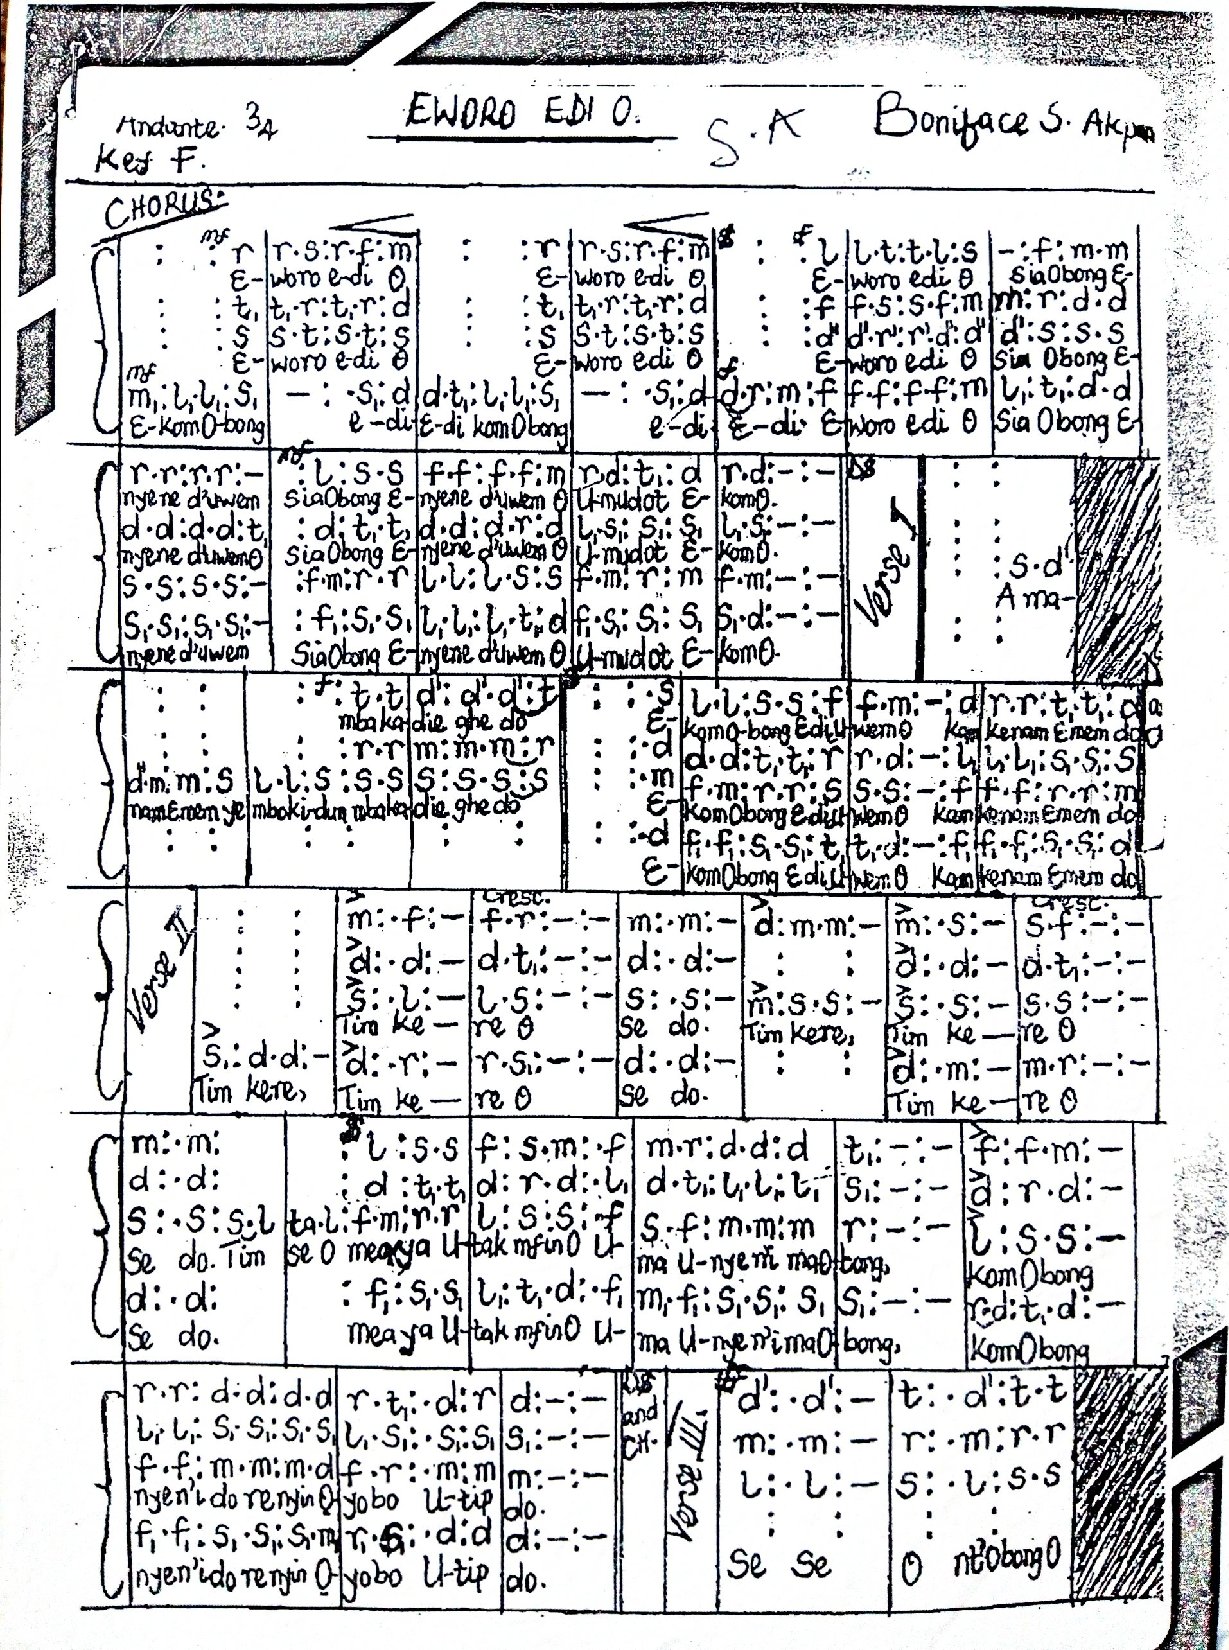 EWORO EDI O.
Andante. 3/4
S. A
Boniface S. Akpan
Key F.
CHORUS:
mf : : r | r.s:r.f:m | : : r | r.s:r.f:m | : : f l | l.t:t.l:s | -:f:m.m
E- woro e-di O E- woro e-di O E- woro edi O Sia Obong E-
: : t, | t,.r:t,.r:d | : : t, | t,.r:t,.r:d | : : f | f.s:s.f:m | m:r:d.d
: : s | s.t:s.t:s | : : s | s.t:s.t:s | : : d' | d'.r':r'.d':d' | d':s:s.s
E- woro e-di O E- woro e-di O E- woro edi O Sia Obong E-
mf m,:l,.l,:s, | -: .s,:d | d.t,:l,.l,:s, | -: .s,:d | d.r:m:f | f.f:f.f:m | l,:t,:d.d
E-kom O-bong e-di E-di kom Obong e-di E-di E- woro edi O Sia Obong E-
r.r:r.r:- | mf :l:s.s | f.f:f.f:m | r.d:t,:d | r.d:-:- | DS
nyene d'uwem Sia Obong E- nyene d'uwem O U-mudot E- kom O.
d.d:d.d:t, | :d:t,.t, | d.d:d.r:d | l,.s,:s,:s, | l,.s,:-:-
nyene d'uwem O Sia Obong E- nyene d'uwem O U-mudot E- kom O.
s.s:s.s:- | :f.m:r.r | l.l:l.s:s | f.m:r:m | f.m:-:-
s,.s,:s,.s,:- | :f,:s,.s, | l,.l,:l,.t,:d | f,.s,:s,:s, | s,.d:-:-
nyene d'uwem Sia Obong E- nyene d'uwem O U-mudot E- kom O.
Verse I
s.d'
A ma-
: : | :f.:t.t | d':d'.d':t | : : .s | l.l:s.s:f | f.m:-:d | r.r:t,.t,:d
mbaka-die ghe do E- kom O-bong Edi U-wem O Kam kenam Emem do
: : | :r.r | m:m.m:r | : : .d | d.d:t,.t,:r | r.d:-:l, | l,.l,:s,.s,:s
d'.m:m:s | l.l:s:s.s | s:s.s:s | : : .m | f.m:r.r:s | s.s:-:f | f.f:r.r:m
nam Emem ye mboki-dun mbaka-die ghe do E- kom Obong Edi U-wem O Kam kenam Emem do
: : | : : | : : | : : .d | f,.f,:s,.s,:t, | t,.d:-:f, | f,.f,:s,.s,:d
E- kom Obong Edi U-wem O Kam kenam Emem do
Verse II
Cresc.
Cresc.
: : | m:.f:- | f.r:-:- | m:.m:- | d:m.m:- | m:.s:- | s.f:-:-
: : | d:.d:- | d.t,:-:- | d:.d:- | : : | d:.d:- | d.t,:-:-
: : | s:.l:- | l.s:-:- | s:.s:- | m:s.s:- | s:.s:- | s.s:-:-
Tim ke - re O se do. Tim kere, Tim ke - re O
s,:d.d:- | d:.r:- | r.s,:-:- | d:.d:- | : : | d:.m:- | m.r:-:-
Tim kere, Tim ke - re O se do. Tim ke - re O
m:.m: | :l:s.s | f:s.m:.f | m.r:d.d:d | t,:-:- | f:f.m:-
d:.d: | :d:t,.t, | d:r.d:.l, | d.t,:l,.l,:l, | s,:-:- | d:r.d:-
s:.s:s.l | ta.l:f.m:r.r | l:s.s:.f | s.f:m.m:m | r:-:- | l:s.s:-
se do. Tim se O mea ya U-tak mfin O U- ma U-nyen'i ma O-bong, Kom Obong
d:.d: | :f,:s,.s, | l,:t,.d:.f, | m,.f,:s,.s,:s, | s,:-:- | r.d:t,.d:-
se do. mea ya U-tak mfin O U- ma U-nyen'i ma O-bong, Kom Obong
r.r:d.d:d.d | r.t,:.d:r | d:-:- | DS and CH. | d':.d':- | t:.d':t.t
l,.l,:s,.s,:s,.s, | l,.s,:.s,:s, | s,:-:- | m:.m:- | r:.m:r.r
f.f:m.m:m.d | f.r:.m:m | m:-:- | l:.l:- | s:.l:s.s
nyen'i do renyin O yobo U-tip do.
f,.f,:s,.s,:s,.m, | r,.s,:.d:d | d:-:- | : : | : :
nyen'i do renyin O- yobo U-tip do. Se Se O nt'Obong O
Verse III